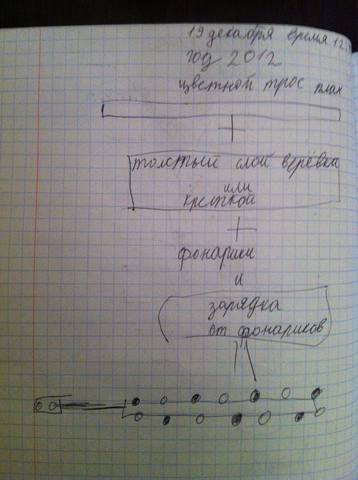 19 декабря время 12
год 2012
цветной трос план
+
толстый слой верёвка
или
крепкой
+
фонарики
и
зарядка
от фонариков